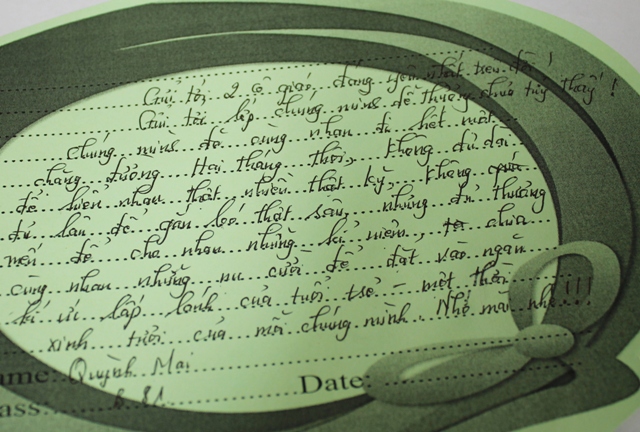 Gửi tới 2 cô giáo đáng yêu nhất trên đời!
Gửi tới lớp chúng mình dễ thương chưa từng thấy!
Chúng mình đã cùng nhau đi hết một
chặng đường. Hai tháng thôi, không đủ dài
để hiểu nhau thật nhiều thật kỹ, không quá
đủ lâu để gắn bó thật sâu, nhưng đủ thương
mến để cho nhau những kỉ niệm, chia
cùng nhau những nụ cười để đặt vào ngăn
kí ức lấp lánh của tuổi trẻ - một thời
xinh tươi của mỗi chúng mình. Nhớ mai nhé!!!
ame: Quỳnh Mai
Date:
ass: